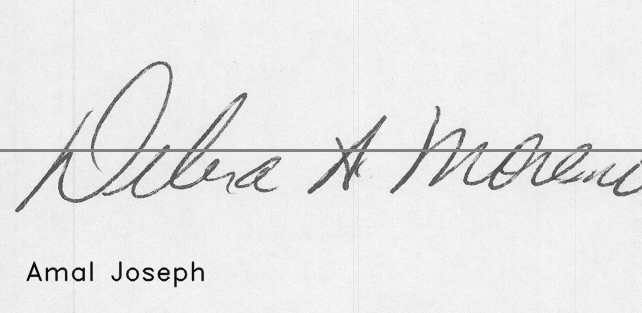 Debra A Moreno
Amal Joseph